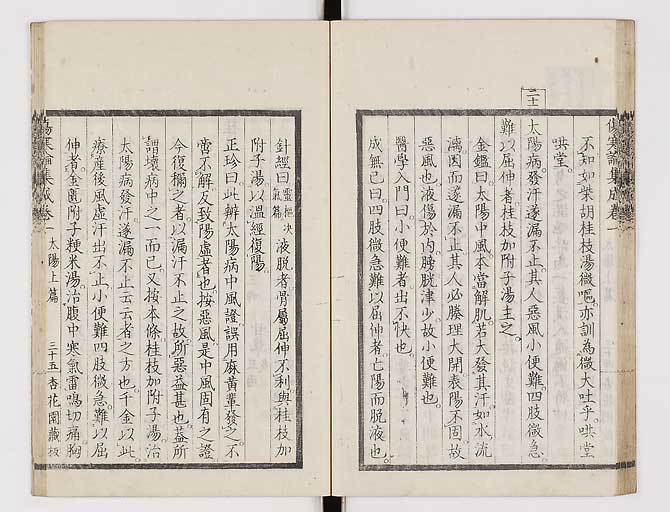 傷寒論集成卷一
不知如柴胡桂枝湯微嘔亦訓為微大吐乎哄堂
哄堂
二十一
太陽病發汗遂漏不止其人惡風小便難四肢微急
難以屈伸者桂枝加附子湯主之
金鑑曰太陽中風本當解肌若大發其汗如水流
漓因而遂漏不止其人必腠理大開表陽不固故
惡風也液傷於内膀胱津少故小便難也
醫學入門曰小便難者出不快也
成無已曰四肢微急難以屈伸者亡陽而脱液也
針經曰靈樞决氣篇液脱者骨屬屈伸不利與桂枝加
附子湯以温經復陽
正珍曰此辨太陽病中風證誤用麻黄輩發之不
啻不解反致陽虚者也按惡風是中風固有之證
今復稱之者以漏汗不止之故所惡益甚也葢所
謂壊病中之一而已又按本條桂枝加附子湯治
太陽病發汗遂漏不止云云者之方也千金以此
療産後風虚汗出不止小便難四肢微急難以屈
伸者金匱附子粳米湯治腹中寒氣雷鳴切痛胸
傷寒論集成卷一 太陽上篇 三十五 杏花園藏板